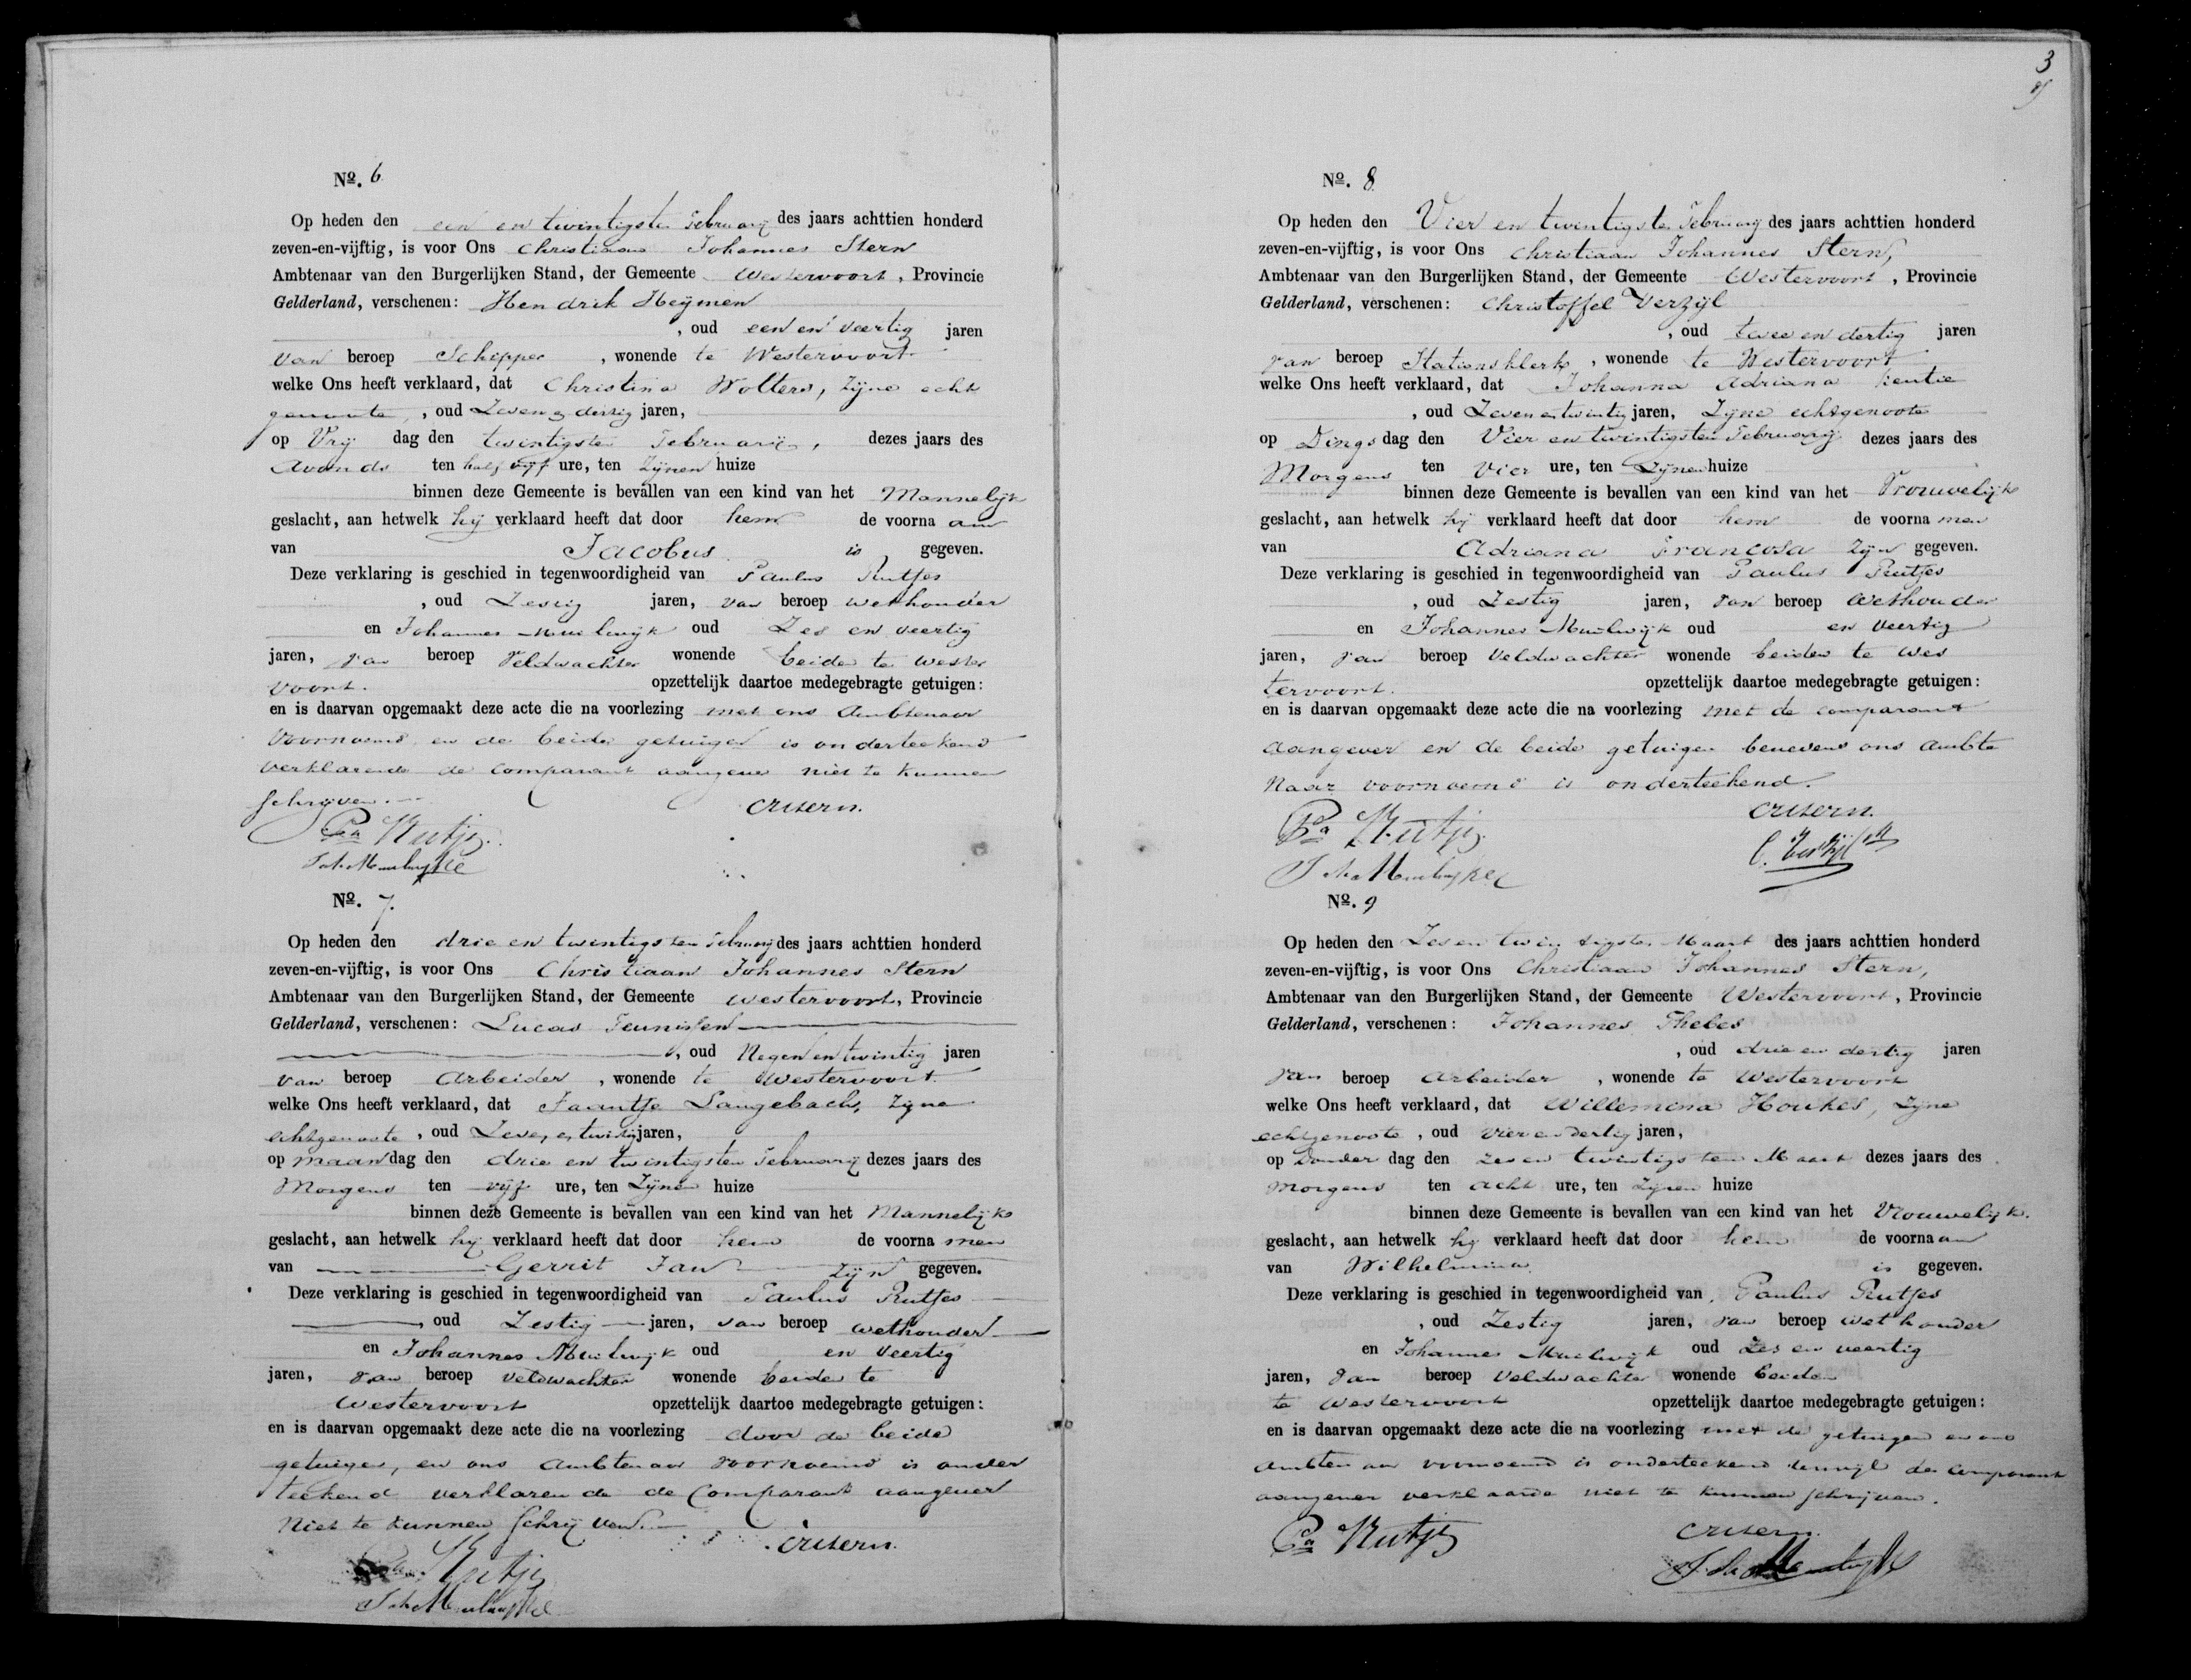 Nº. 6
Op heden den een en twintigsten Februarij des jaars achttien honderd
zeven-en-vijftig, is voor Ons Christiaan Johannes Stern
Ambtenaar van den Burgerlijken Stand, der Gemeente Westervoort, Provincie
Gelderland, verschenen: Hendrik Heijmen
, oud een en veertig jaren
van beroep Schipper, wonende te Westervoort
welke Ons heeft verklaard, dat Christina Wolters, zijne echt
genoote, oud Zeven en dertig jaren,
op Vrij dag den twintigsten Februarij, dezes jaars des
Avonds ten half vijf ure, ten Zijnen huize
binnen deze Gemeente is bevallen van een kind van het Mannelijk
geslacht, aan hetwelk hij verklaard heeft dat door hem de voorna am
van Jacobus is gegeven.
Deze verklaring is geschied in tegenwoordigheid van Paulus Rutjes
, oud Zestig jaren, van beroep wethouder
en Johannes Muilwijk oud Zes en veertig
jaren, van beroep Veldwachter wonende beiden te Wester
voort. opzettelijk daartoe medegebragte getuigen:
en is daarvan opgemaakt deze acte die na voorlezing met ons Ambtenaar
Voornoemd en de beide getuigen is onderteekend
verklarende de Comparant aangever niet te kunnen
schrijven.
CRStern.
Pa Rutjes
Joh Muilwijk
Nº. 7.
Op heden den drie en twintigsten Februarij des jaars achttien honderd
zeven-en-vijftig, is voor Ons Christiaan Johannes Stern
Ambtenaar van den Burgerlijken Stand, der Gemeente Westervoort, Provincie
Gelderland, verschenen: Lucas Teunissen
, oud Negen en twintig jaren
van beroep Arbeider, wonende te Westervoort
welke Ons heeft verklaard, dat Jaantje Langebach, zijne
echtgenoote, oud Zeven en twintig jaren,
op maandag den drie en twintigsten Februarij dezes jaars des
Morgens ten vijf ure, ten Zijnen huize
binnen deze Gemeente is bevallen van een kind van het Mannelijk
geslacht, aan hetwelk hij verklaard heeft dat door hem de voorna men
van Gerrit Jan Zijn gegeven.
Deze verklaring is geschied in tegenwoordigheid van Paulus Rutjes
, oud Zestig jaren, van beroep wethouder
en Johannes Muilwijk oud en veertig
jaren, van beroep veldwachter wonende beiden te
Westervoort opzettelijk daartoe medegebragte getuigen:
en is daarvan opgemaakt deze acte die na voorlezing door de beide
getuigen, en ons Ambtenaar voornoemd is onder
teekend verklarende de Comparant aangever
Niet te kunnen schrijven.
CRStern.
Rutjes
Joh Muilwijk
3
Nº. 8.
Op heden den Vier en twintigsten Februarij des jaars achttien honderd
zeven-en-vijftig, is voor Ons Christiaan Johannes Stern,
Ambtenaar van den Burgerlijken Stand, der Gemeente Westervoort, Provincie
Gelderland, verschenen: Christoffel Verzijl
, oud twee en dertig jaren
van beroep Stationsklerk, wonende te Westervoort
welke Ons heeft verklaard, dat Johanna Adriana Kentie
, oud Zeven en twintig jaren, Zijne echtgenoote
op Dings dag den Vier en twintigsten Februarij dezes jaars des
Morgens ten Vier ure, ten Zijnen huize
binnen deze Gemeente is bevallen van een kind van het Vrouwelijk
geslacht, aan hetwelk hij verklaard heeft dat door hem de voorna men
van Adriana Francosa Zijn gegeven.
Deze verklaring is geschied in tegenwoordigheid van Paulus Rutjes
, oud Zestig jaren, van beroep Wethouder
en Johannes Muilwijk oud en veertig
jaren, van beroep Veldwachter wonende beiden te Wes
tervoort. opzettelijk daartoe medegebragte getuigen:
en is daarvan opgemaakt deze acte die na voorlezing met de comparant
aangever en de beide getuigen benevens ons Ambte
naar voornoemd is onderteekend.
CRStern.
Pa Rutjes.
C. Verzijl
Joh Muilwijk
Nº. 9
Op heden den Zes en twintigsten Maart des jaars achttien honderd
zeven-en-vijftig, is voor Ons Christiaan Johannes Stern,
Ambtenaar van den Burgerlijken Stand, der Gemeente Westervoort, Provincie
Gelderland, verschenen: Johannes Thebes
, oud drie en dertig jaren
van beroep Arbeider, wonende te Westervoort
welke Ons heeft verklaard, dat Willemina Houkes, zijne
echtgenoote, oud vier en dertig jaren,
op Donder dag den zes en twintigsten Maart dezes jaars des
morgens ten acht ure, ten zijnen huize
binnen deze Gemeente is bevallen van een kind van het Vrouwelijk.
geslacht, aan hetwelk hij verklaard heeft dat door hem de voorna am
van Wilhelmina is gegeven.
Deze verklaring is geschied in tegenwoordigheid van Paulus Rutjes
, oud Zestig jaren, van beroep wethouder
en Johannes Muilwijk oud Zes en veertig
jaren, van beroep Veldwachter wonende beiden
te Westervoort opzettelijk daartoe medegebragte getuigen:
en is daarvan opgemaakt deze acte die na voorlezing met de getuigen en ons
Ambtenaar voornoemd is onderteekend terwijl de comparant
aangever verklaarde niet te kunnen schrijven.
CRStern.
Pa Rutjes
Joh Muilwijk